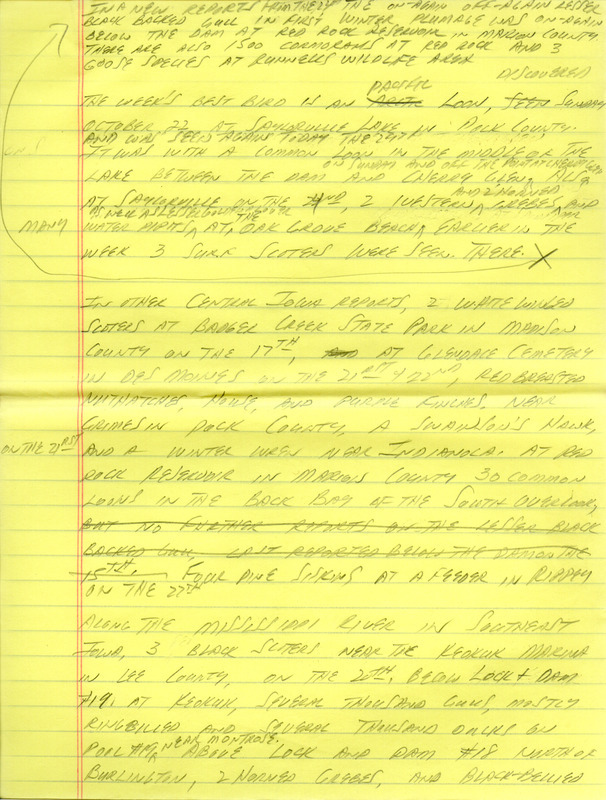 IN A NEW REPORTS FROM THE 24TH THE ON-AGAIN OFF-AGAIN LESSER
BLACK BACKED GULL IN FIRST WINTER PLUMAGE WAS ON-AGAIN
BELOW THE DAM AT RED ROCK RESERVOIR IN MARION COUNTY.
THERE ARE ALSO 1500 CORMORANTS AT RED ROCK AND 3
GOOSE SPECIES AT RUNNELLS WILDLIFE AREA
PACIFIC DISCOVERED
THE WEEK'S BEST BIRD IS AN ARCTIC LOON, SEEN SUNDAY
OCTOBER 22 AT SAYLORVILLE LAKE IN POLK COUNTY.
AND WAS SEEN AGAIN TODAY THE 24TH
IT WAS WITH A COMMON LOON IN THE MIDDLE OF THE
ON SUNDAY AND OFF THE POINT AT CHERRY GLEN
LAKE BETWEEN THE DAM AND CHERRY GLEN. ALSO
AND 2 HORNED
AT SAYLORVILLE ON THE 22ND, 2 WESTERN GREBES, AND
MANY WATER PIPITS, AT OAK GROVE BEACH, EARLIER IN THE
WEEK 3 SURF SCOTERS WERE SEEN. THERE. X
IN OTHER CENTRAL IOWA REPORTS, 2 WHITE WINGED
SCOTERS AT BADGER CREEK STATE PARK IN MADISON
COUNTY ON THE 17TH, AND AT GLENDALE CEMETERY
IN DES MOINES ON THE 21ST & 22ND, RED BREASTED
NUTHATCHES, HOUSE, AND PURPLE FINCHES. NEAR
GRIMES IN POLK COUNTY, A SWAINSON'S HAWK,
ON THE 21ST AND A WINTER WREN NEAR INDIANOLA. AT RED
ROCK RESERVOIR IN MARION COUNTY 30 COMMON
LOONS IN THE BACK BAY OF THE SOUTH OVERLOOK,
BUT NO FURTHER REPORTS ON THE LESSER BLACK
BACKED GULL LAST REPORTED BELOW THE DAM ON THE
15TH. FOUR PINE SISKINS AT A FEEDER IN RIPPEY
ON THE 22TH
ALONG THE MISSISSIPPI RIVER IN SOUTHEAST
IOWA, 3 BLACK SCOTERS NEAR THE KEOKUK MARINA
IN LEE COUNTY, ON THE 20TH. BELOW LOCK & DAM
#19, AT KEOKUK, SEVERAL THOUSAND GULLS, MOSTLY
RINGBILLED AND SEVERAL THOUSAND DUCKS ON
POOL #19, NEAR MONTROSE. ABOVE LOCK AND DAM #18 NORTH OF
BURLINGTON, 2 HORNED GREBES, AND BLACK-BELLIED